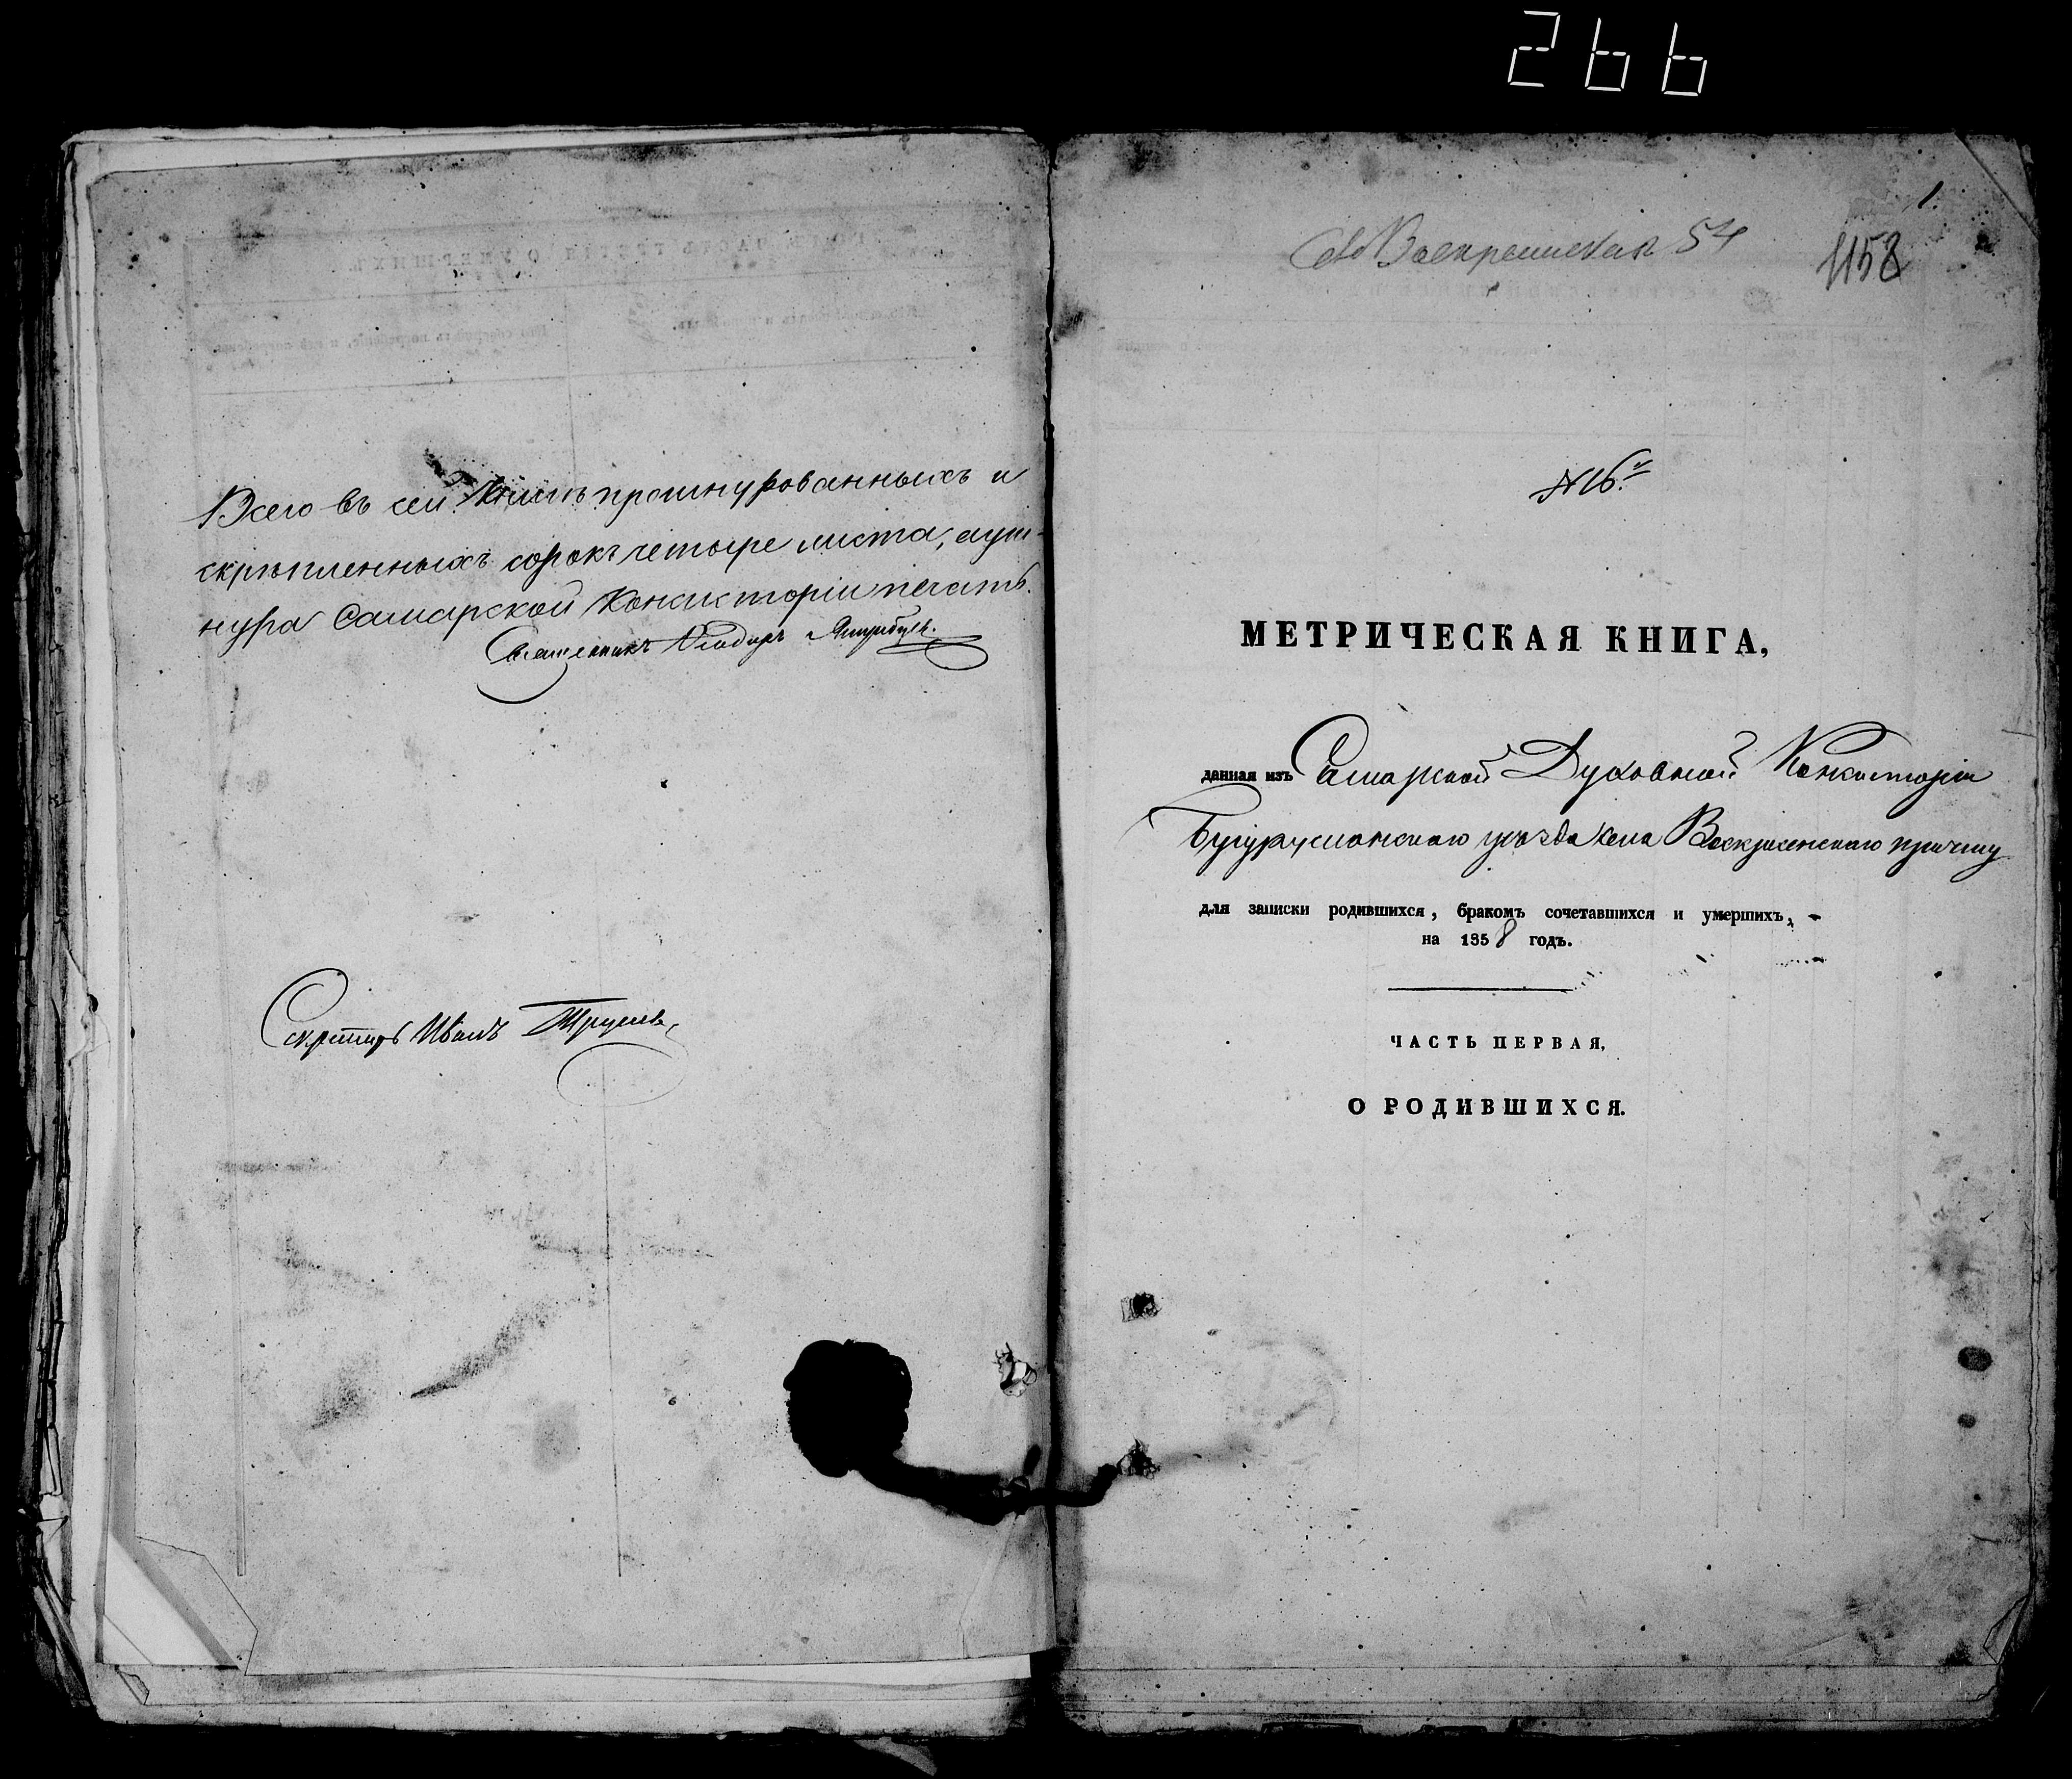 266
Всего въ сей книгѣ прошнурованныхъ и
скрѣпленныхъ сорокъ четыре листа, а у шн-
нура Самарской Консисторіи печать.
Священникъ
Секретарь Иванъ
1.
Воскресенская 54
1158
№ 16.й
МЕТРИЧЕСКАЯ КНИГА,
данная изъ Самарской Духовной Консисторіи
Бугурусланскаго уѣзда села Воскресенскаго причту
для записки родившихся, бракомъ сочетавшихся и умершихъ,
на 1858 годъ.
ЧАСТЬ ПЕРВАЯ,
О РОДИВШИХСЯ.